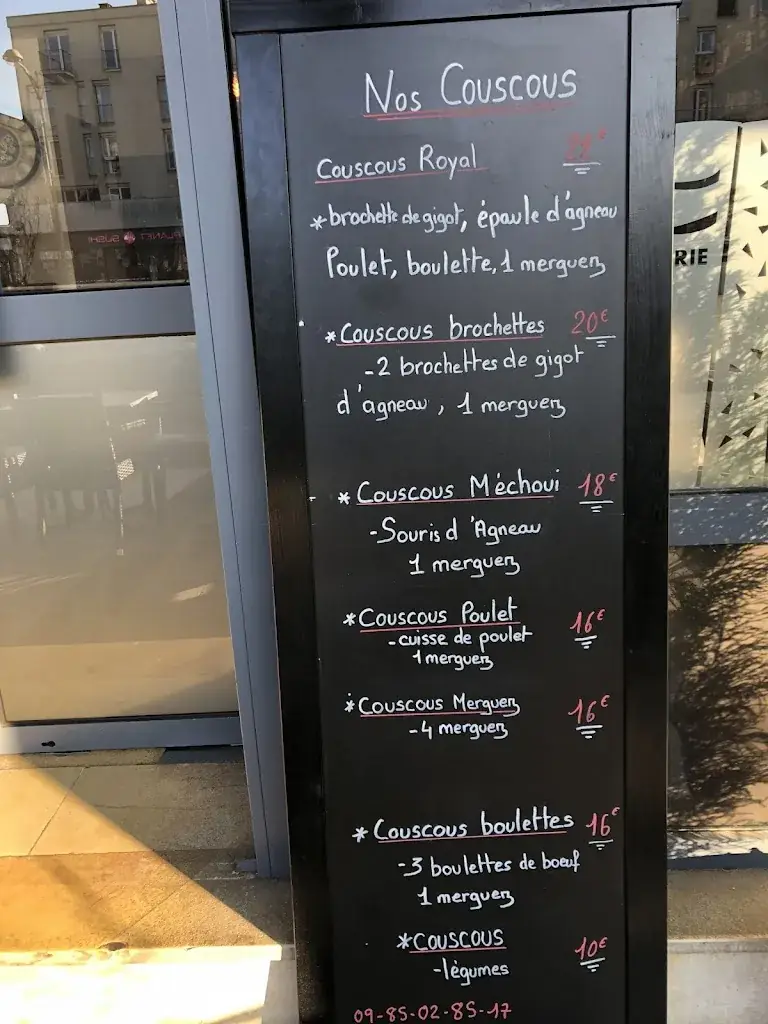 Nos Couscous
Couscous Royal
*brochette de gigot, épaule d'agneau
Poulet, boulette, 1 merguez
*Couscous brochettes 20€
-2 brochettes de gigot
d'agneau, 1 merguez
*Couscous Méchoui 18€
-Souris d'Agneau
1 merguez
*Couscous Poulet 16€
-cuisse de poulet
1 merguez
*Couscous Merguez 16€
-4 merguez
*Couscous boulettes 16€
-3 boulettes de boeuf
1 merguez
*COUSCOUS 10€
-légumes
09-85-02-85-17
RIE
PLANET SUSHI